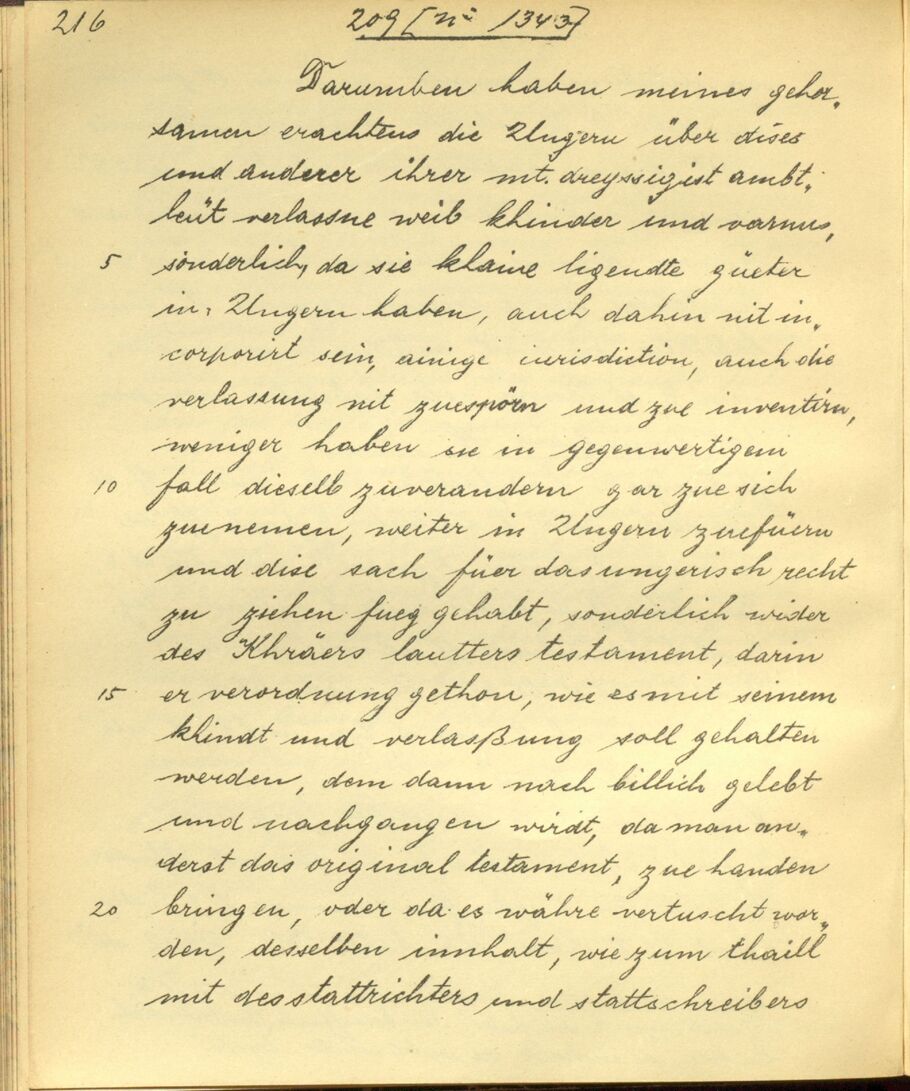 216
209 [nº 1343]
Darumben haben meines gehor„
samen erachtens die Ungern über dises
und anderer ihrer mt. dreyssigist ambt„
leüt verlassne weib khinder und varnus,
5 sonderlich, da sie khaine ligendte güeter
in Ungern haben, auch dahin nit in„
corporirt sein, ainige iurisdiction, auch die
verlassung nit zuespörn und zue inventirn,
weniger haben sie in gegenwertigem
10 fall dieselb zuverandern gar zue sich
zuenemen, weiter in Ungern zuefüern
und dise sach füer das ungerisch recht
zu ziehen fueg gehabt, sonderlich wider
des Khräers lautters testament, darin
15 er verordnung gethon, wie es mit seinem
khindt und verlaßung soll gehalten
werden, dem dann nach billich gelebt
und nachgangen wirdt, da man an„
derst das original testament, zue handen
20 bringen, oder da es währe vertuscht wor„
den, desselben innhalt, wie zum thaill
mit des stattrichters und stattschreibers